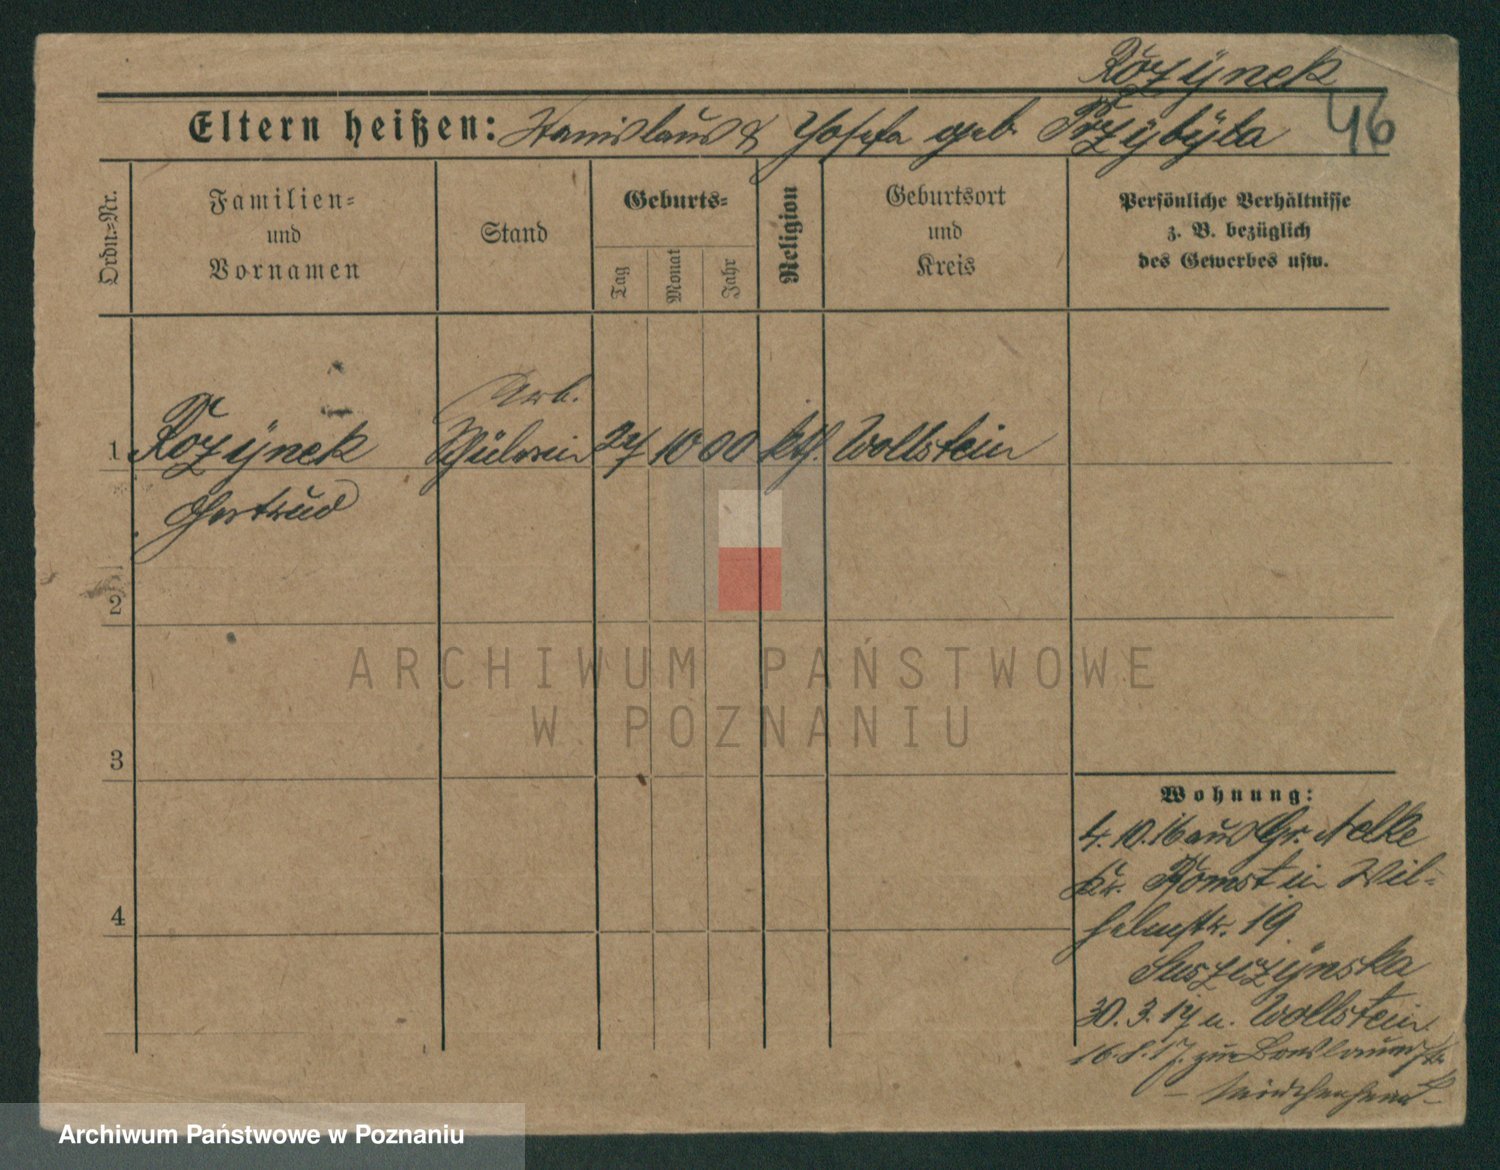 Rozynek
46
Eltern heißen: Stanislaus & Josefa geb. Przybyla
Ordn.-Nr.
Familien-
und
Vornamen
Stand
Geburts-
Tag
Monat
Jahr
Religion
Geburtsort
und
Kreis
Persönliche Verhältnisse
z. B. bezüglich
des Gewerbes usw.
Arb.
1 Rozynek Schülerin 27 10 00 kth. Wollstein
Gertrud
2
3
4
Wohnung:
4.10.16 aus Gr. Nelke
Kr. Bomst in Wil-
helmstr. 19
Suszczynska
30. 3. 17 n. Wollstein
16.8.17. zur Breslauerstr.
ARCHIWUM PAŃSTWOWE
W POZNANIU
Archiwum Państwowe w Poznaniu